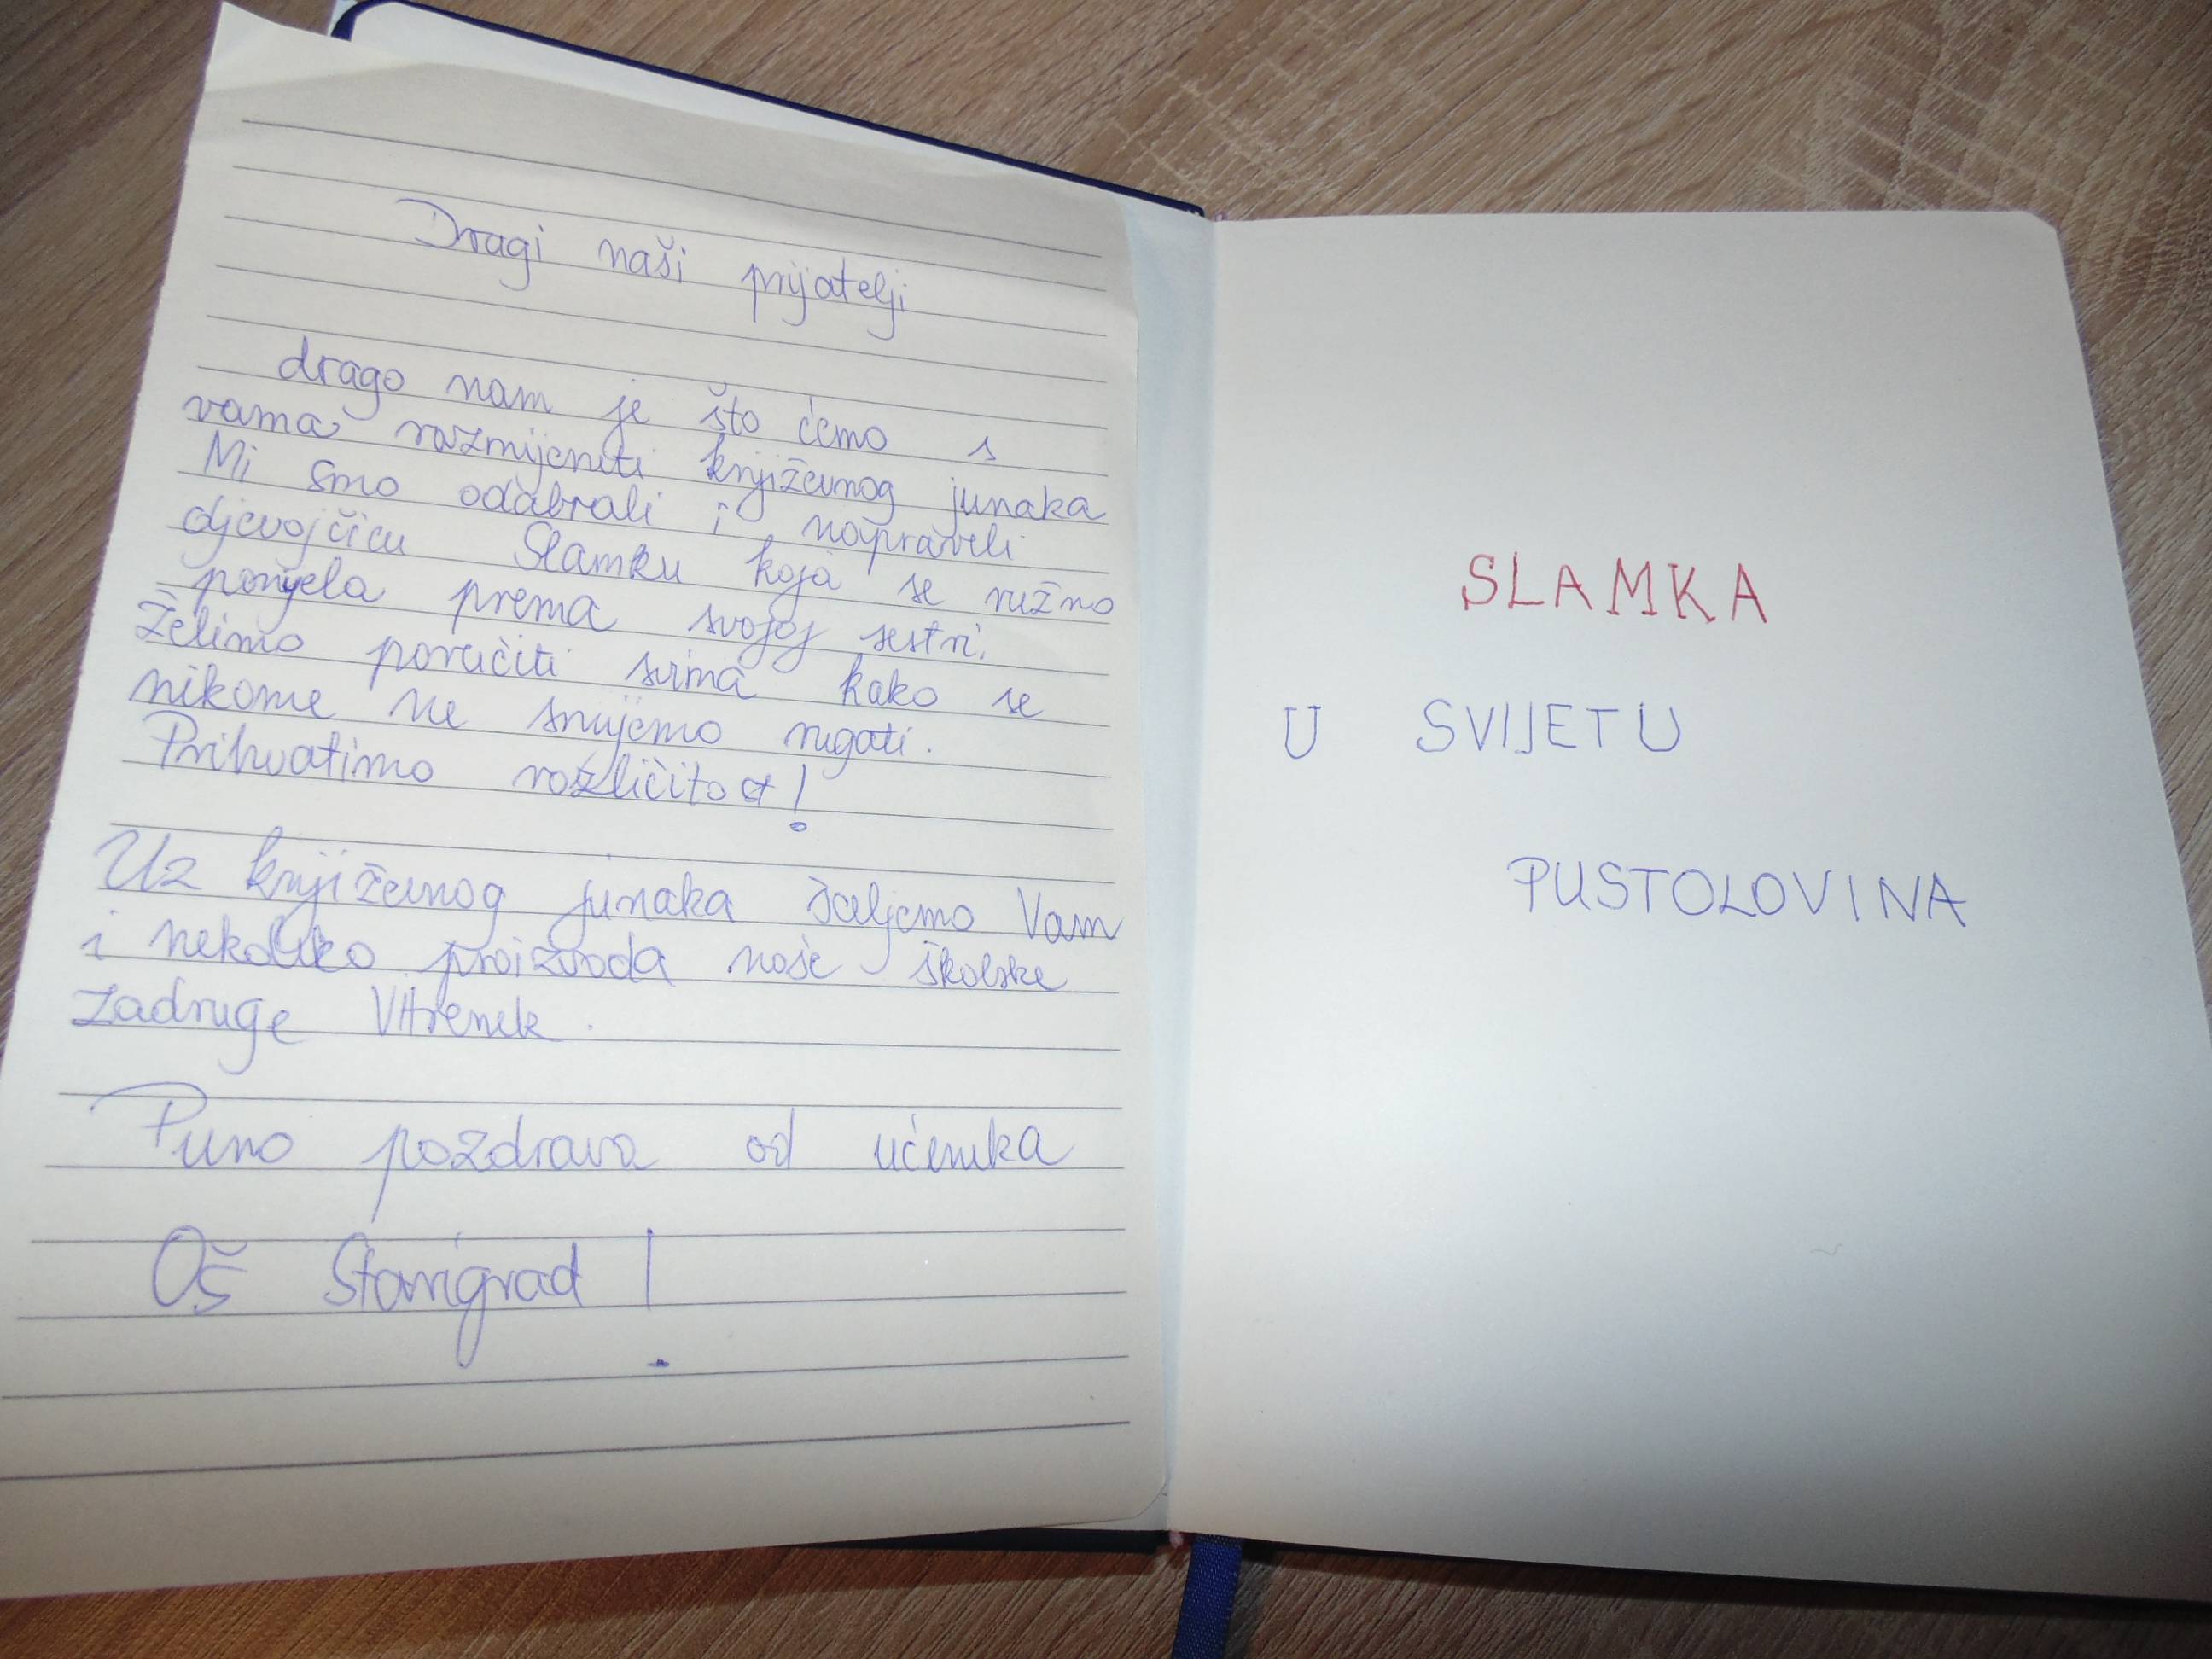 Dragi naši prijatelji
drago nam je što ćemo s
vama razmijeniti književnog junaka
Mi smo odabrali i napravili
djevojčicu Slamku koja se ružno
ponijela prema svojoj sestri.
Želimo poručiti svima kako se
nikome ne smijemo rugati.
Prihvatimo različitost!
Uz književnog junaka šaljemo Vam
i nekoliko proizvoda naše školske
zadruge Vitrenek.
Puno pozdrava od učenika
OŠ Starigrad!
SLAMKA
U SVIJETU
PUSTOLOVINA